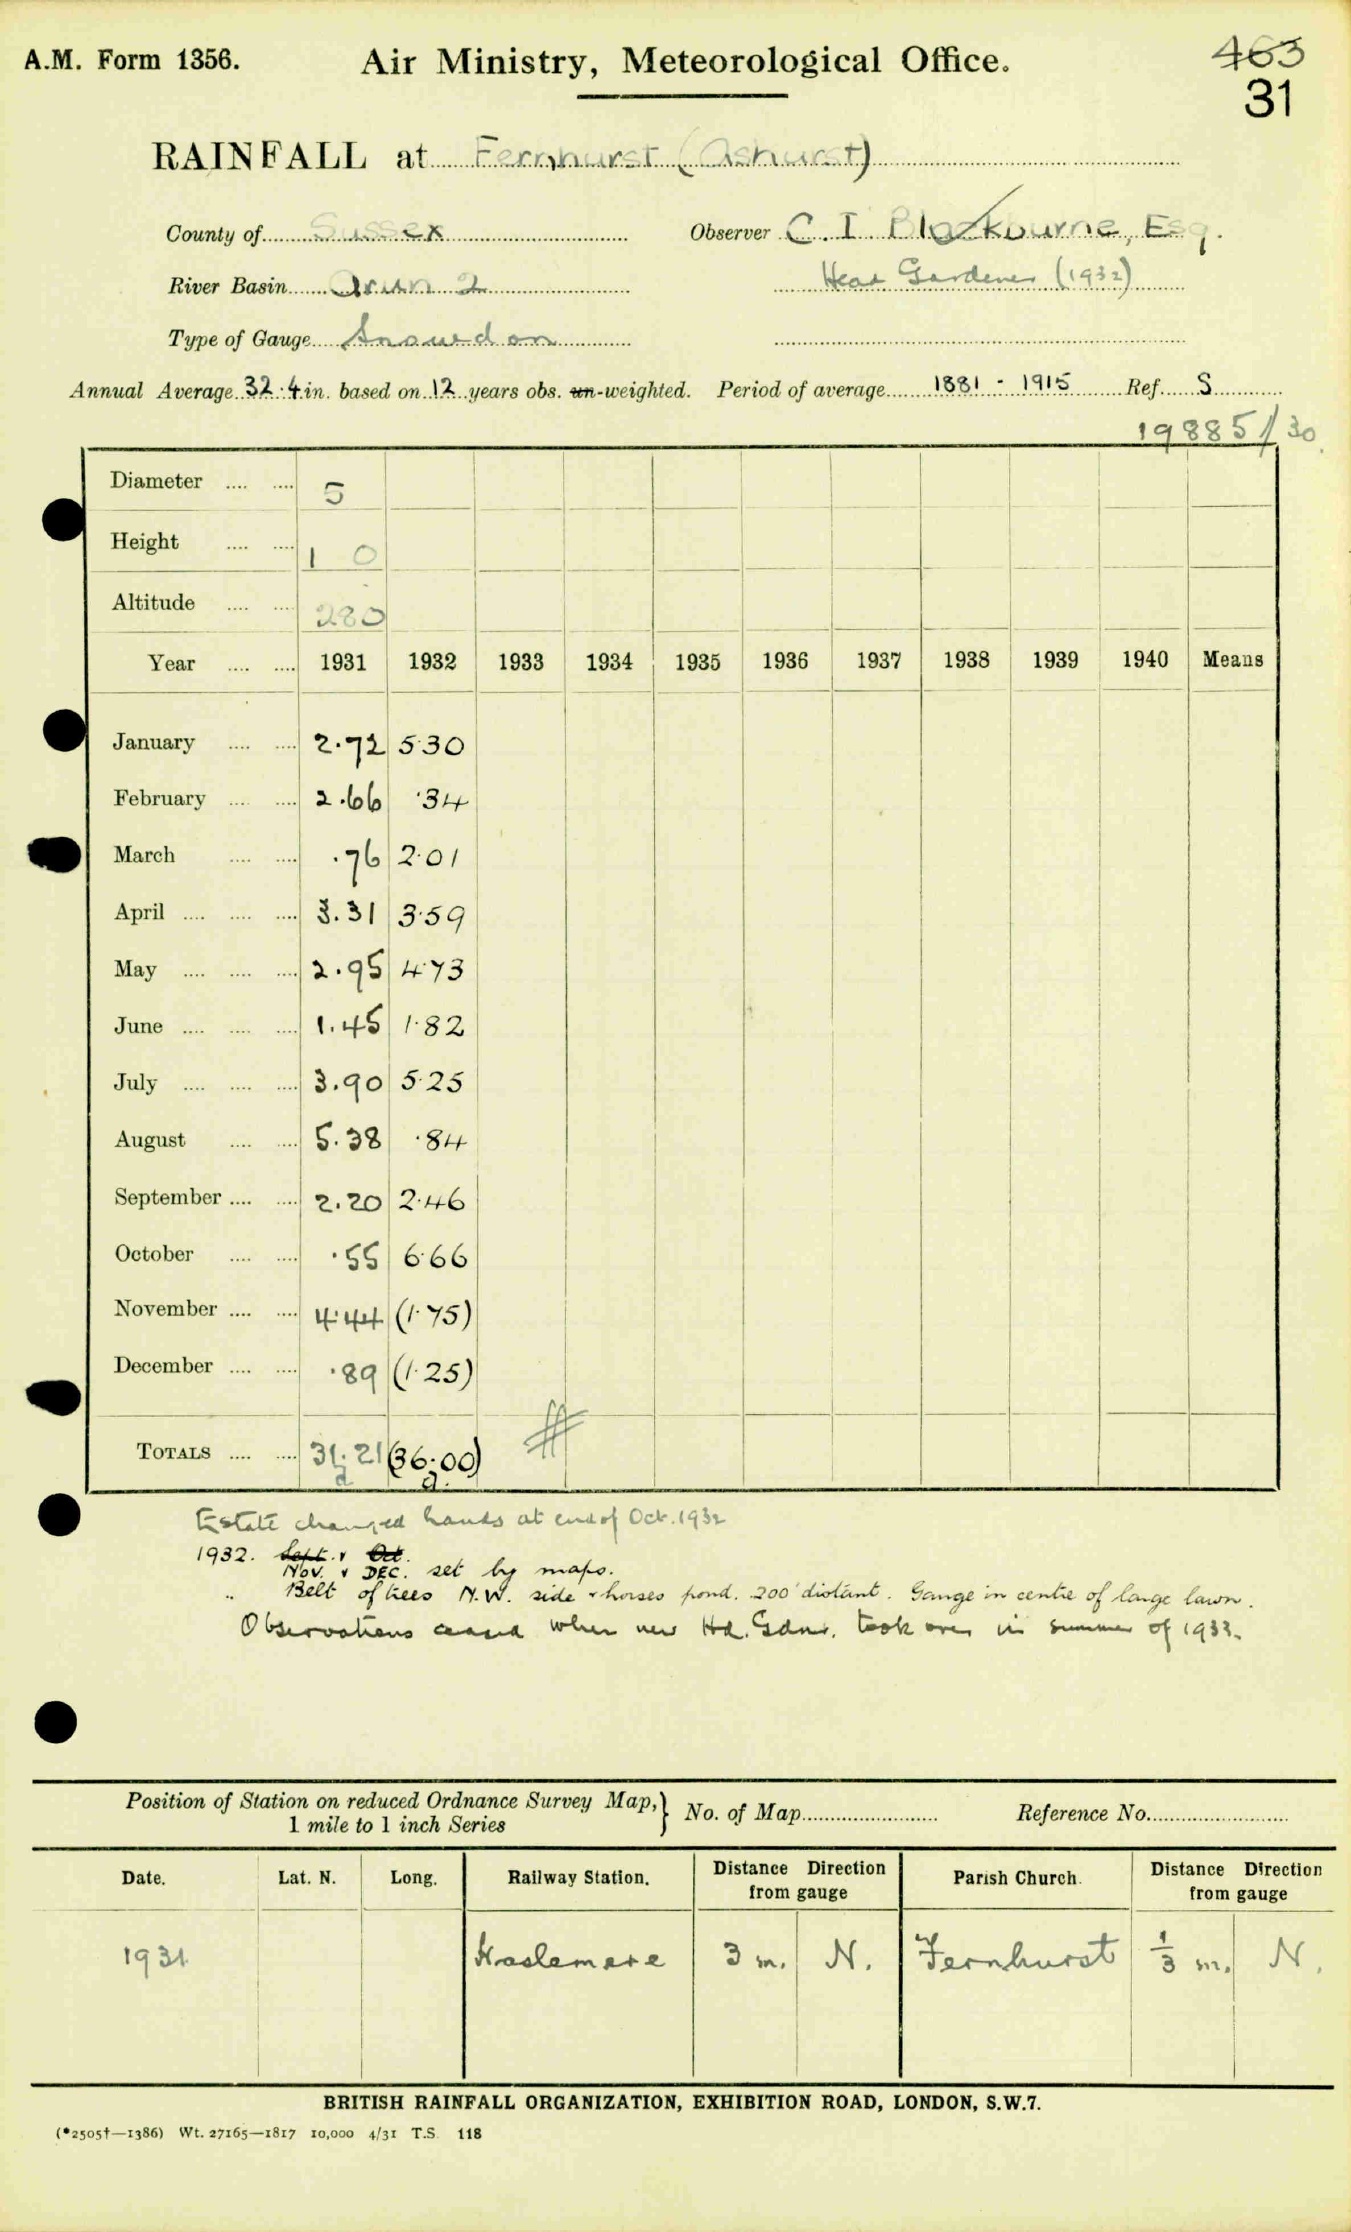 A.M. Form 1356. Air Ministry, Meteorological Office. 463
31
RAINFALL at Fernhurst (Ashurst)
County of Sussex Observer C. I. Blackburne, Esq.
River Basin Arun 2 Head Gardener (1932)
Type of Gauge Snowdon
Annual Average 32.4 in. based on 12 years obs. un-weighted. Period of average 1881 - 1915 Ref. S
19885/30
Diameter .... .... 5
Height .... .... 1 0
Altitude .... .... 280
Year .... .... 1931 1932 1933 1934 1935 1936 1937 1938 1939 1940 Means
January .... .... 2.72 5.30
February .... .... 2.66 .34
March .... .... .76 2.01
April .... .... .... 3.31 3.59
May .... .... .... 2.95 4.73
June .... .... .... 1.45 1.82
July .... .... .... 3.90 5.25
August .... .... 5.38 .84
September .... .... 2.20 2.46
October .... .... .55 6.66
November .... .... 4.44 (1.75)
December .... .... .89 (1.25)
TOTALS .... .... 31.21 (36.00)
Estate changed hands at end of Oct. 1932
1932. Sept. & Oct.
Nov. & DEC. set by maps.
" Belt of trees N.W. side & horses pond. 200' distant. Gauge in centre of large lawn.
Observations ceased when new Hd. Gdnr. took over in summer of 1933.
Position of Station on reduced Ordnance Survey Map, } No. of Map Reference No.
1 mile to 1 inch Series
Date. Lat. N. Long. Railway Station. Distance Direction from gauge Parish Church. Distance Direction from gauge
1931 Haslemere 3 m. N. Fernhurst 1/3 m. N.
BRITISH RAINFALL ORGANIZATION, EXHIBITION ROAD, LONDON, S.W.7.
(*2505†—1386) Wt. 27165—1817 10,000 4/31 T.S. 118